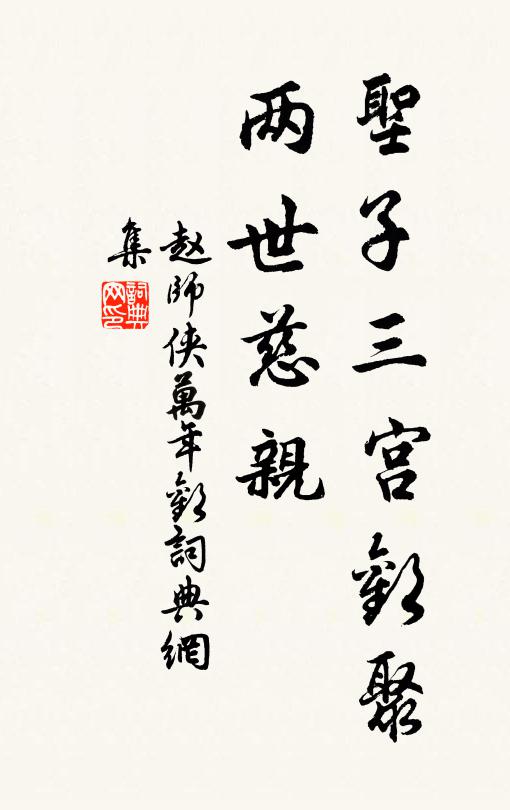 聖子三宮歡聚
兩世慈親
赵師俠萬年歡詞典網
集
詞典
网印